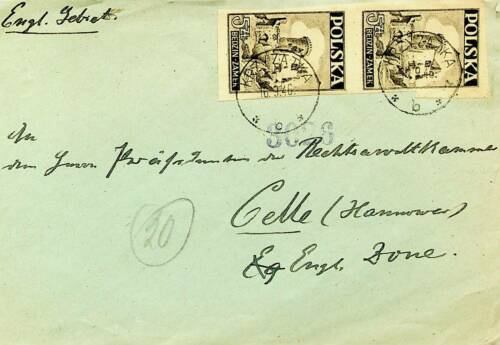 Engl. Gebiet.
POLSKA
5 ZŁ
BĘDZIN-ZAMEK
POLSKA
5 ZŁ
BĘDZIN-ZAMEK
* b *
* b *
An
den Herrn Präsidenten der Rechtsanwaltkammer
20
Celle (Hannover)
Engl. Zone.